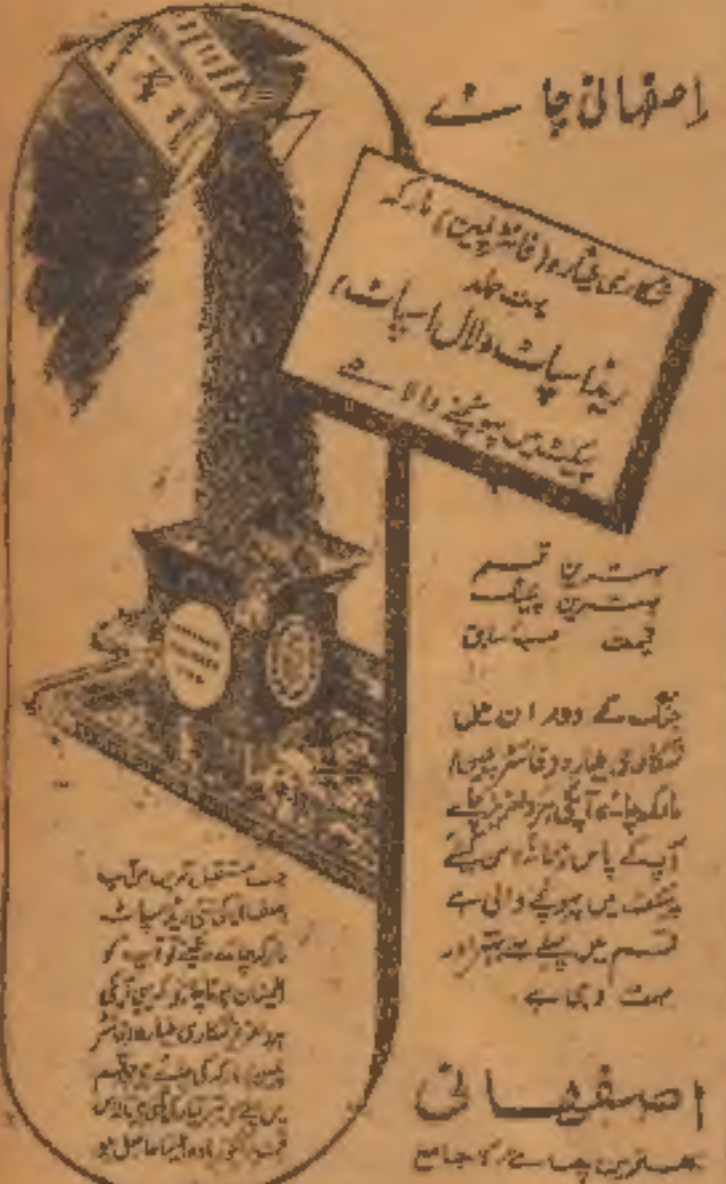 اصفہانی چائے
شکاری طیارہ (فائٹر پلین) مارکہ
بہت جلد
ریڈ اسپاٹ (لال اسپاٹ)
پیکٹ میں پہونچنے والا ہے
بہترین قسم
بہترین پیکنگ
قیمت حسب سابق
جنگ کے دوران میں
شکاری طیارہ (فائٹر پلین)
مارکہ چائے آپکی ہردلعزیز چائے
آپکے پاس زمانۂ امن کے
پیکٹ میں پہونچنے والی ہے
قسم میں پہلے سے بہتر اور
قیمت وہی ہے
مستقبل قریب میں آپ
اصفہانی کی نئی ریڈ اسپاٹ
مارکہ چائے تو آپ کو
اطمینان ہونا چاہئے کہ یہی آپکی
ہردلعزیز شکاری طیارہ (فائٹر
پلین) مارکہ کی ہے جو قسم
میں پہلے سے بہتر
حاصل ہو
اصفہانی
بہترین چائے کا جامع